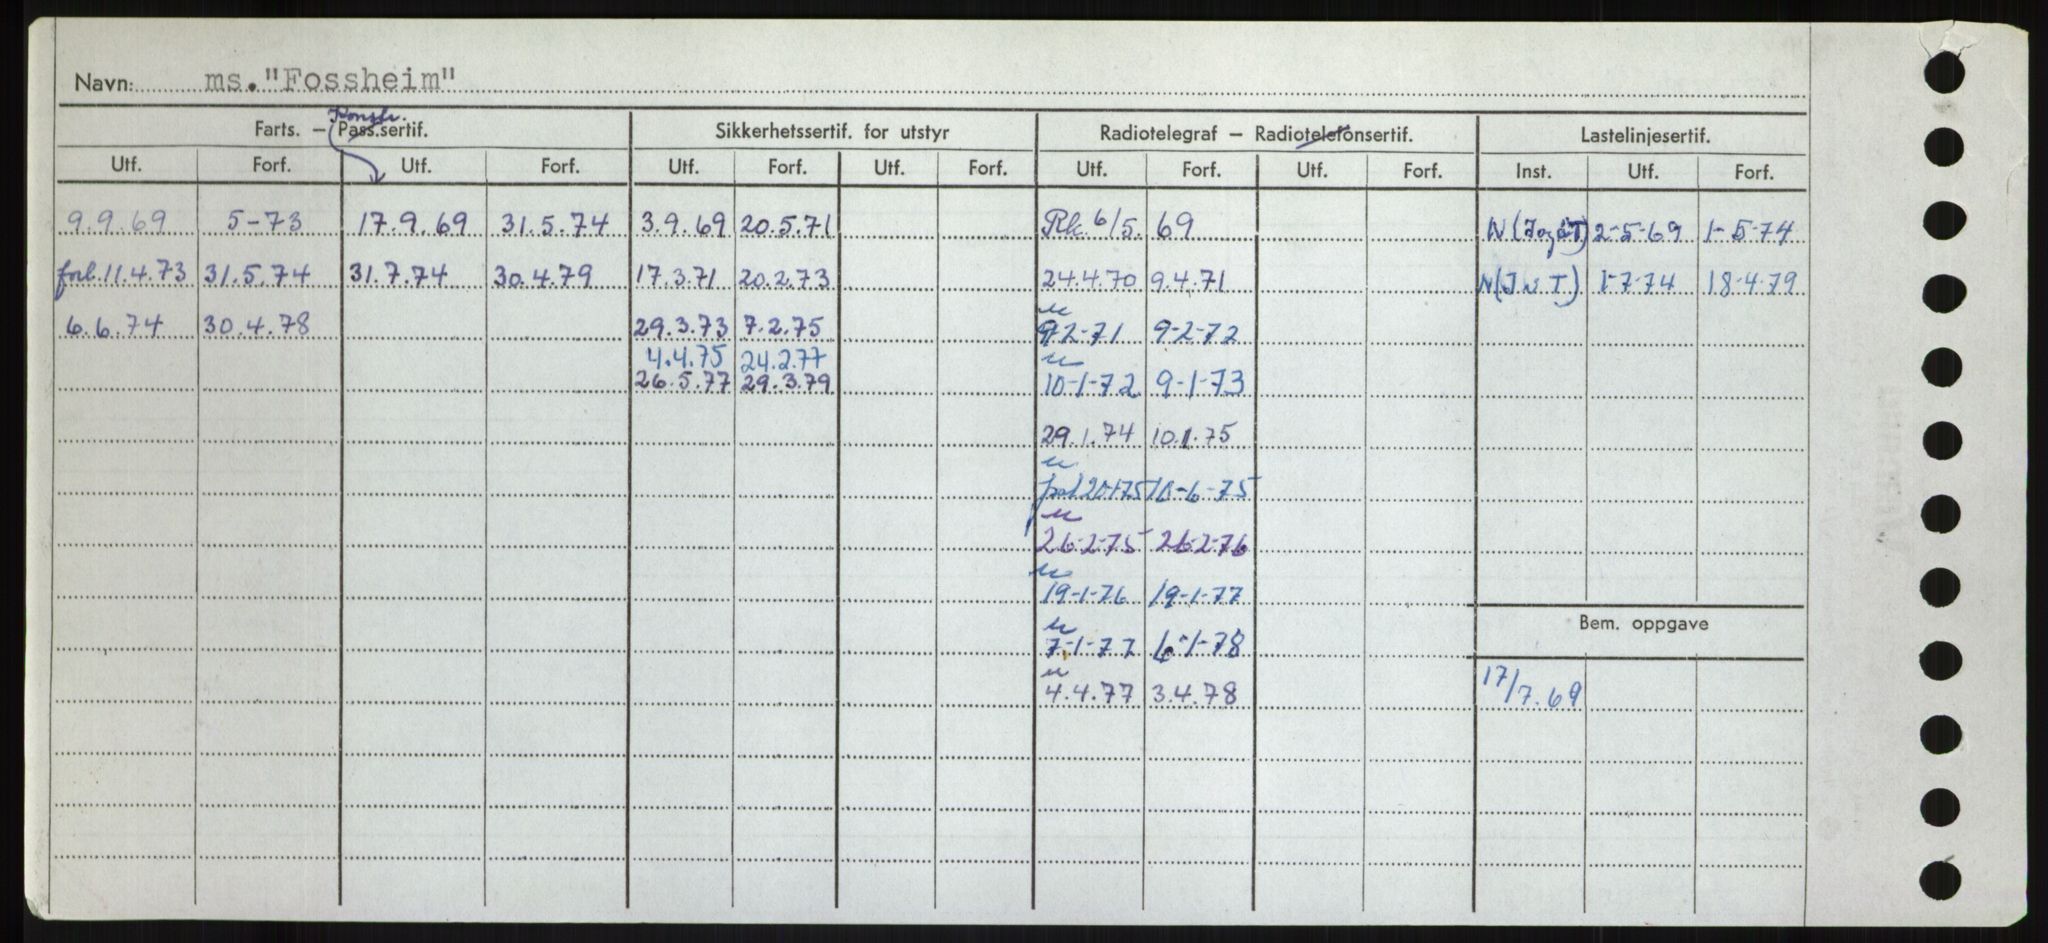 Navn: ms. "Fossheim"
Konstr.
Farts. – Pass.sertif. Sikkerhetssertif. for utstyr Radiotelegraf – Radiotelefonsertif. Lastelinjesertif.
Utf. Forf. Utf. Forf. Utf. Forf. Utf. Forf. Utf. Forf. Utf. Forf. Inst. Utf. Forf.
9.9.69 5-73 17.9.69 31.5.74 3.9.69 20.5.71 Rk. 6/5. 69 2-5-69 1-5-74
forl. 11.4.73 31.5.74 31.7.74 30.4.79 17.3.71 20.2.73 24.4.70 9.4.71 N(J W T) 1-7-74 18-4-79
6.6.74 30.4.78 29.3.73 7.2.75 9-2-71 9-2-72
4.4.75 24.2.77
26.5.77 29.3.79 10-1-72 9-1-73
29.1.74 10.1.75
20-1-75 10-6-75
26-2-75 26-2-76
19-1-76 19-1-77
Bem. oppgave
7-1-77 6-1-78
4.4.77 3.4.78 17/7.69